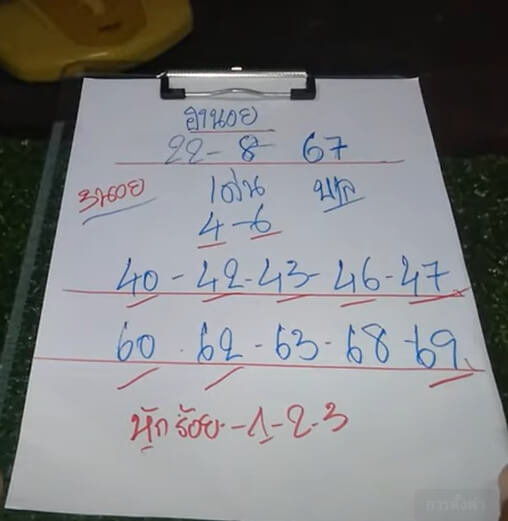 ฮานอย
22-8-67
ฮานอย เด่น บน
4-6
40-42-43-46-47
60.62-63-68-69
หักร้อย-1-2-3
การตั้งค่า